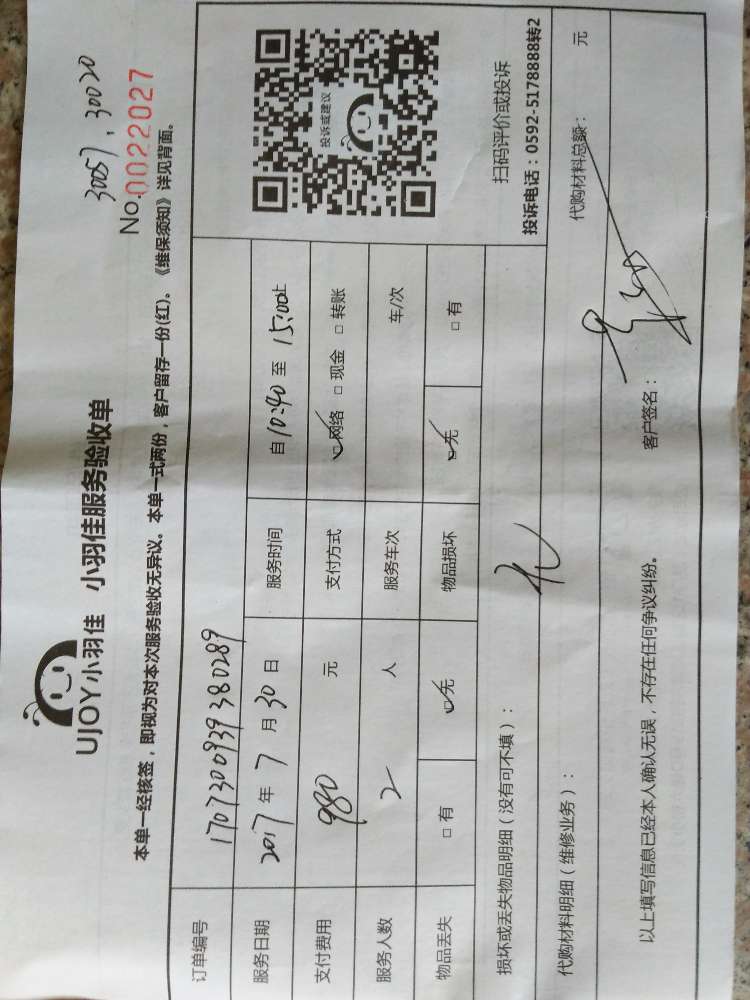 30057, 30020
No.0022027
UJOY小羽佳 小羽佳服务验收单
本单一经核签，即视为对本次服务验收无异议。本单一式两份，客户留存一份(红)。《维保须知》详见背面。
订单编号 1707300939380289
服务日期 2017 年 7 月 30 日 服务时间 自 10:40 至 15:00 止
支付费用 980 元 支付方式 □网络 □现金 □转账
服务人数 2 人 服务车次 车/次
物品丢失 □有 □无 物品损坏 □无 □有
投诉或建议
扫码评价或投诉
投诉电话：0592-5178888转2
损坏或丢失物品明细（没有可不填）： 无
代购材料明细（维修业务）： 代购材料总额： 元
以上填写信息已经本人确认无误，不存在任何争议纠纷。 客户签名：